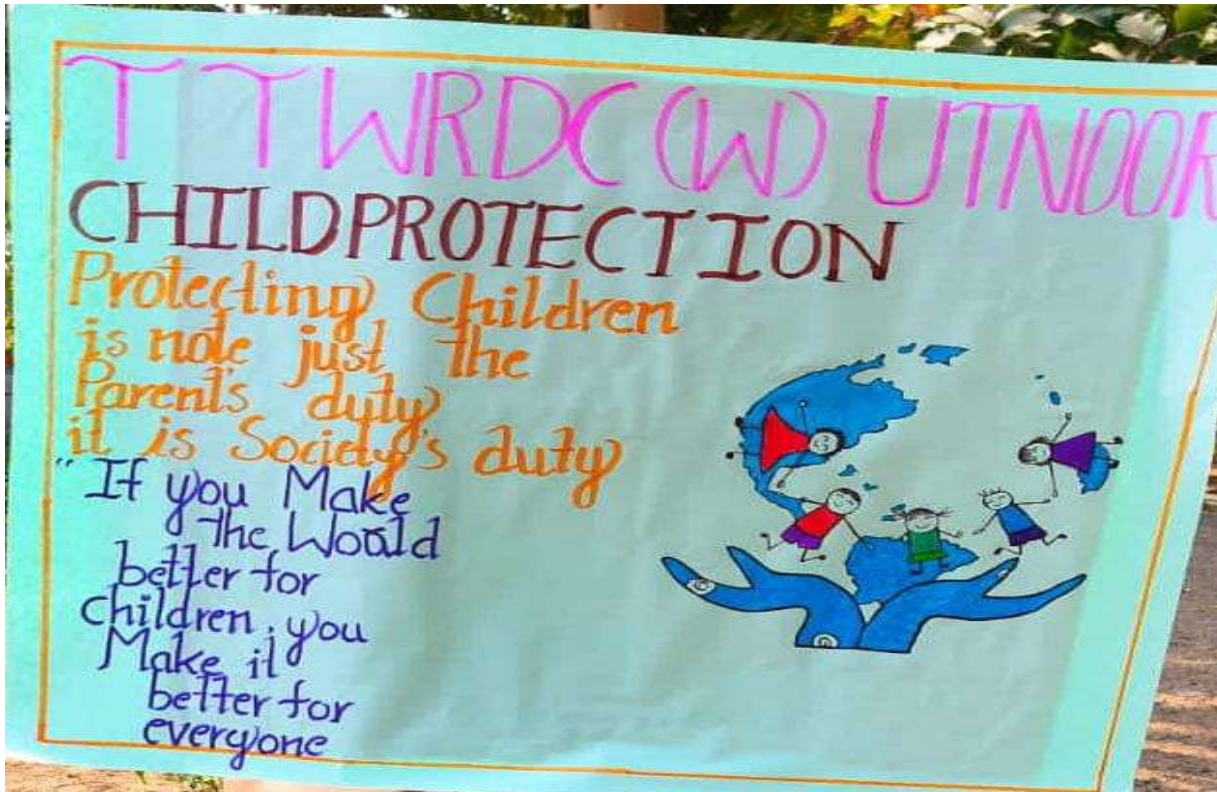 T TWRDC (W) UTNOOR
CHILDPROTECTION
Protecting Children
is note just the
Parent's duty
it is Society's duty
"If you Make
the Would
better for
children, you
Make it
better for
everyone